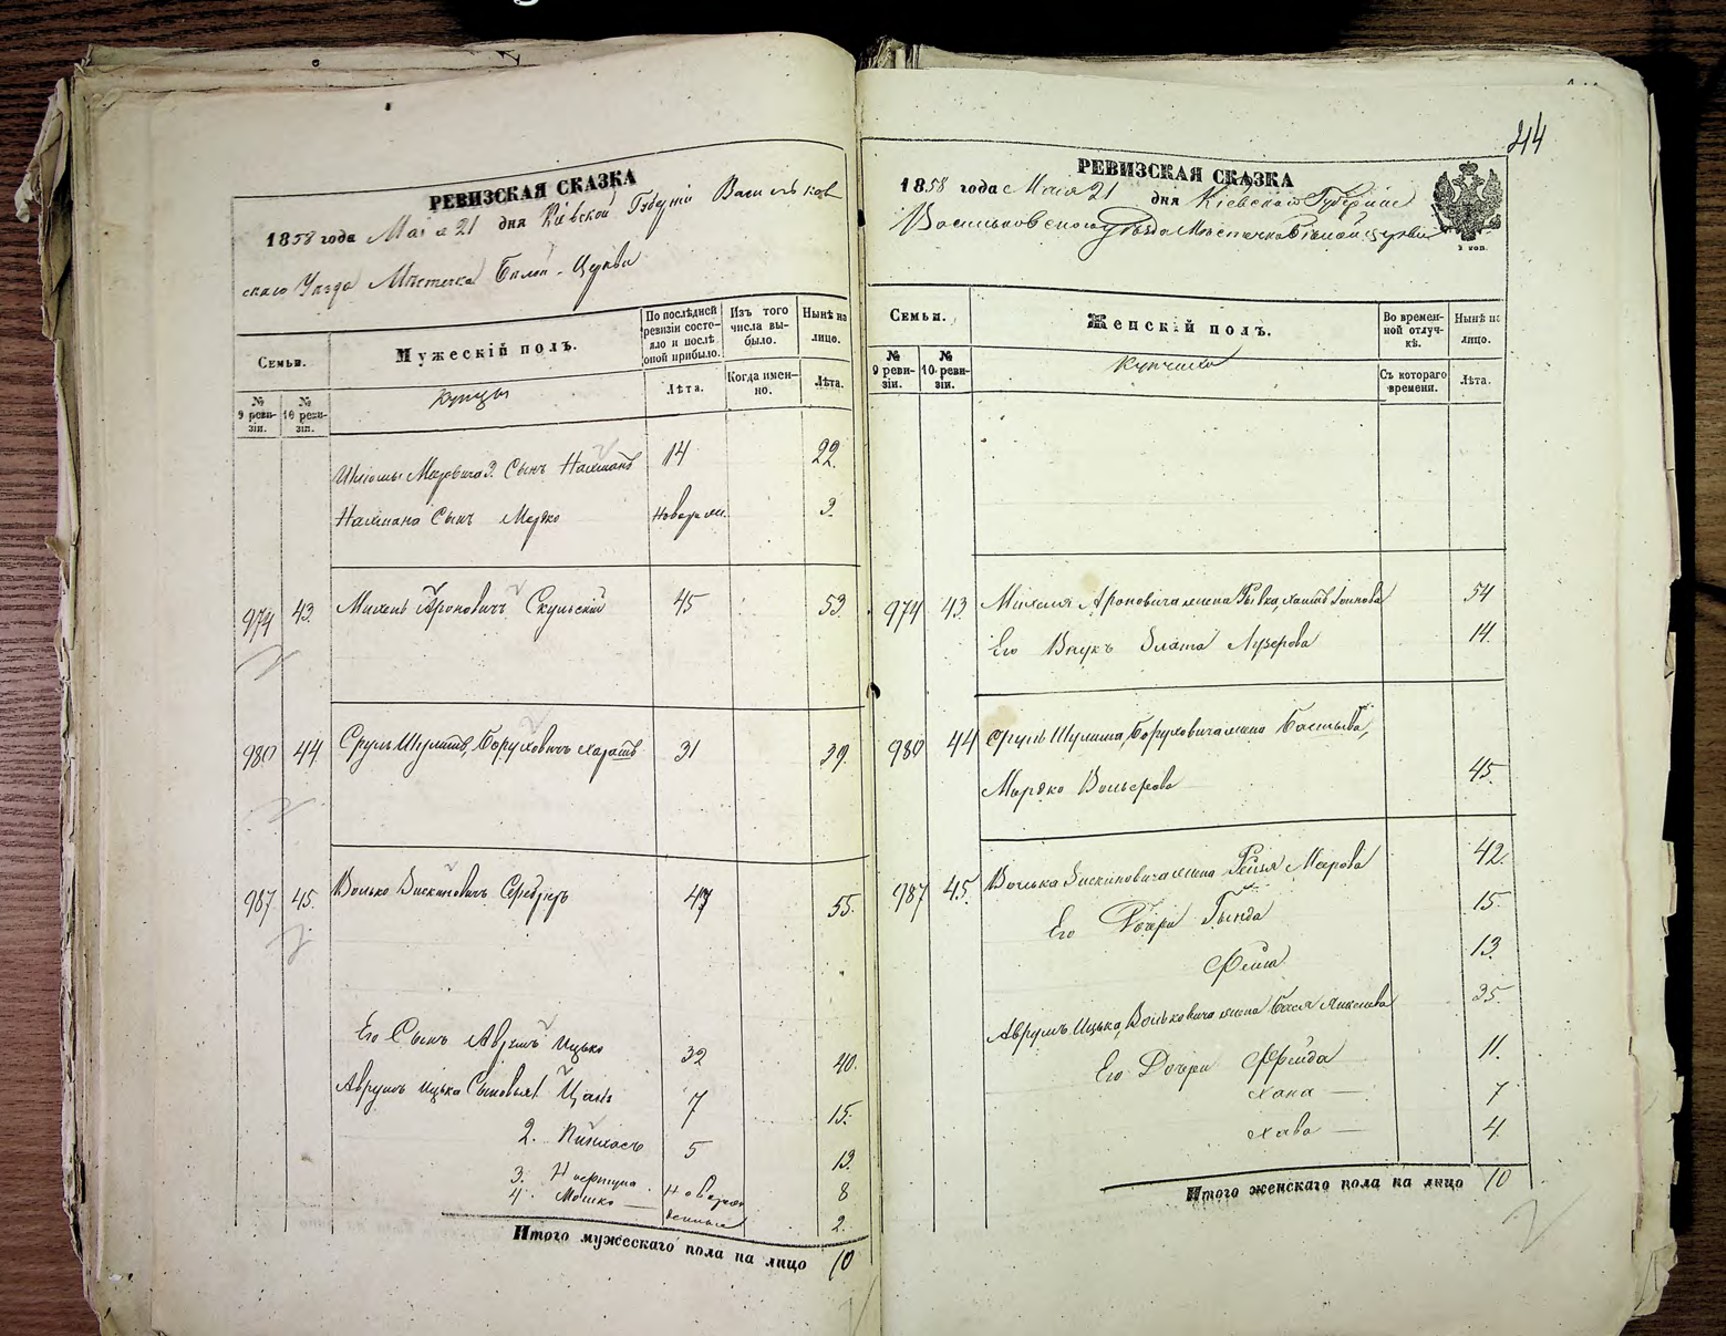 РЕВИЗСКАЯ СКАЗКА
1858 года Маія 21 дня Кіевской Губерніи Васильков
скаго Уезда Местечка Белой-Церкви
Семьи.
Мужескій полъ.
По послѣдней ревизіи состояло и послѣ оной прибыло.
Изъ того числа выбыло.
Нынѣ на лицо.
№ 9 ревизіи.
№ 10 ревизіи.
купцы
Лѣта.
Когда именно.
Лѣта.
Мееровича 3. Сынъ Нахманъ 14 22.
Нахмана Сынъ Мордко 3.
974 43. Ароновичъ Сквирскій 45 53
980 44 Сруль Шулимъ, Боруховичъ 31 39.
987 45. Волько Зискиновичъ 47 55.
Его Сынъ Аврумъ Ицько 32 40.
Аврумъ Ицька Сыновья 1. 7 15.
2. Пинхасъ 5 13.
3. Новорож 8
4. Мошко денные 2.
Итого мужескаго пола на лицо 10
244
РЕВИЗСКАЯ СКАЗКА
1858 года Маія 21 дня Кіевской Губерніи
Васильковскаго Уезда Местечка Белой Церкви
2 коп.
Семьи.
Женскій полъ.
Во временной отлучкѣ.
Нынѣ на лицо.
№ 9 ревизіи.
№ 10 ревизіи.
Съ котораго времени.
Лѣта.
974 43 Ароновича жена Рывка, 54
Его Внукъ Злата Лузерова 14.
980 44 Сруль Шулима, Боруховича жена Басшева,
Мордко Вольфова 45.
987 45. Волька Зискиновича жена Рейзя Меерова 42.
Его Дочери Гинда 15.
Фейга 13.
Аврумъ Ицька, Вольковича жена Бася 35.
Его Дочери Фрейда 11.
Хана — 7
Хава — 4.
Итого женскаго пола на лицо 10